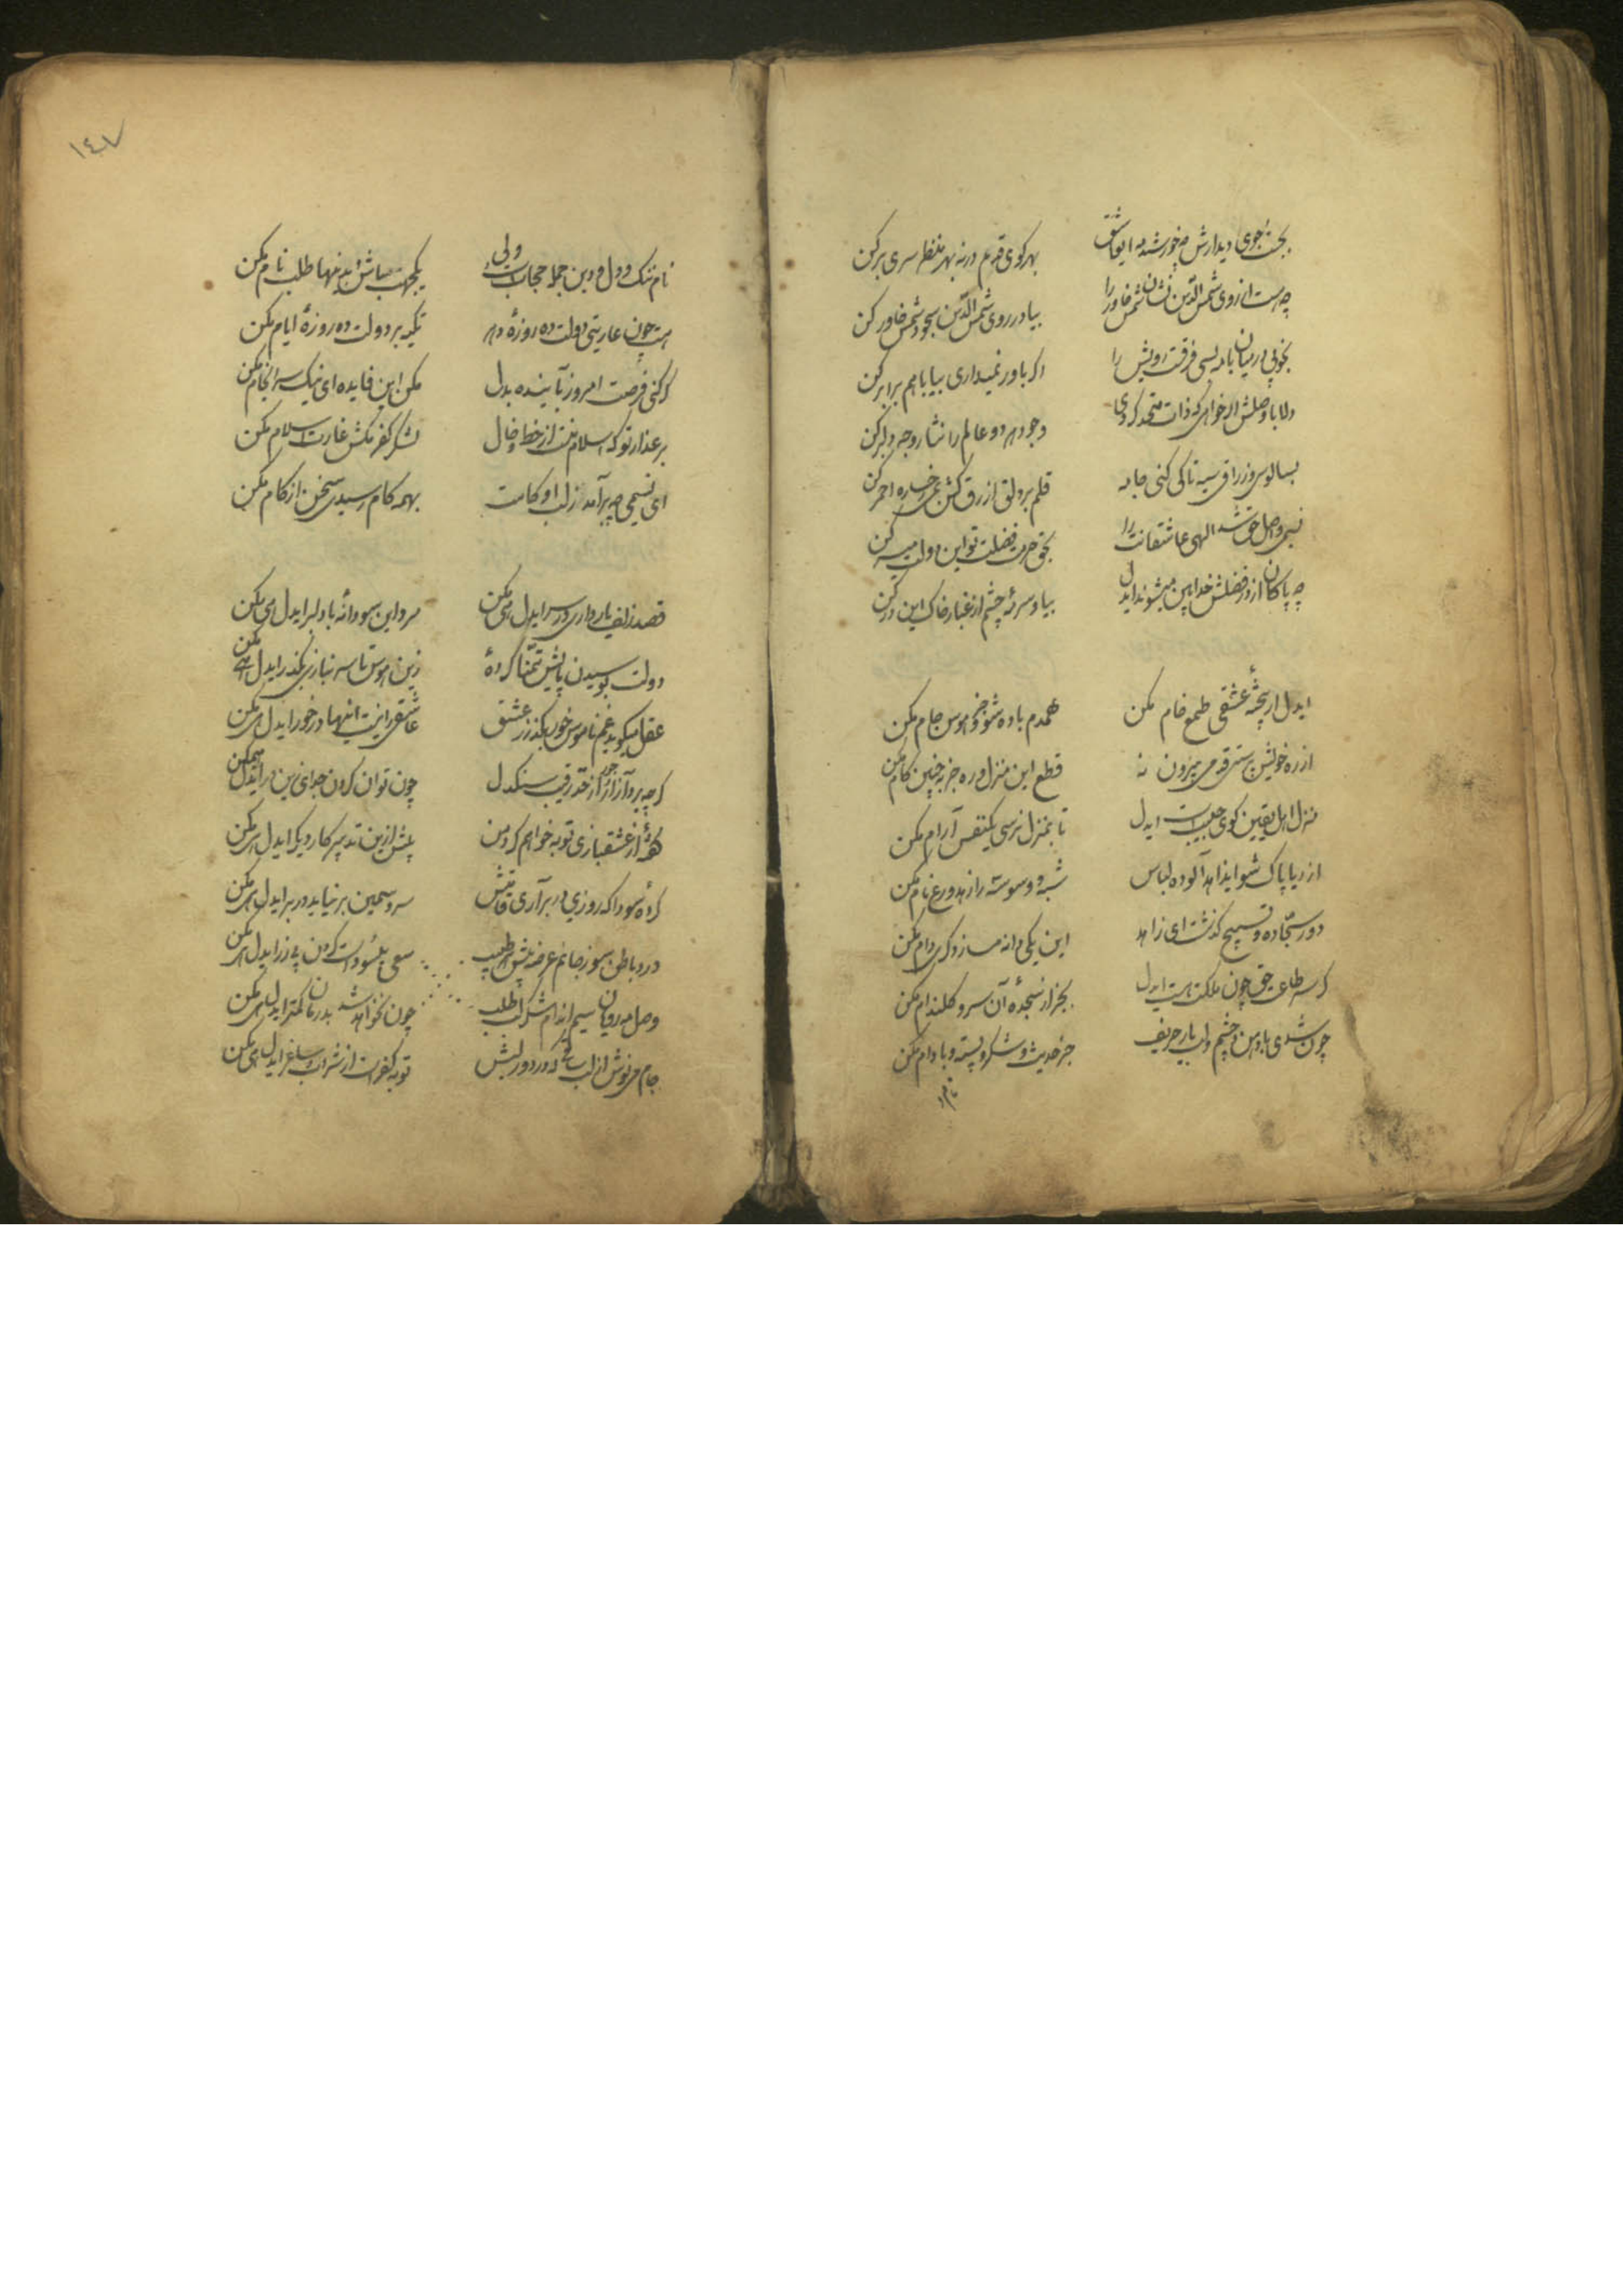 بجست جوی دیدارش چو خورشید ای عاشق
بهر کوی قدم درنه بهر منظر سری برکن
چه هست از روی شمس الدین نشان شمس خاور را
بیا در روی شمس الدین سجود شمس خاور کن
بخوبی در میان با مه بسی فرقست رویش را
اگر باور نمیداری بیا با هم برابر کن
دلا با وصلش ار خواهی که ذات متحد کردی
وجود هر دو عالم را نثار وجه دلبر کن
بسالوسی و زراقی سیه تا کی کنی جامه
قلم بر دلق ازرق کش بمی رخساره احمر کن
نسیمی واصل حق شد الهی عاشقانت را
بحق حرمت فضلت تو این دولت میسر کن
چه پاکان از در فضلش خدابین میشوند ایدل
بیا و سرمهٔ چشم از غبار خاک این در کن
ایدل ار پختهٔ عشقی طمع خام مکن
همدم باده شو و جز هوس جام مکن
از ره خویش پرستی قدمی بیرون نه
قطع این منزل و ره جز بچنین کام مکن
منزل اهل یقین کوی حبیبست ایدل
تا بمنزل نرسی یکنفس آرام مکن
از ریا پاک شو ای زاهد آلوده لباس
شبه و وسوسه را زهد و ورع نام مکن
دور سجاده و تسبیح گذشت ای زاهد
این یکی دانه مساز و دگری دام مکن
گر سر طاعت حق چون ملکت هست ایدل
بجز از سجدهٔ آن سرو گلندام مکن
چون شدی با دهن و چشم و لب یار حریف
جز حدیث شکر و پسته و بادام مکن
نام
١٤٧
نام و ننگ و دل و دین جمله حجابست ولی
یکجهت باش و بدینها طلب نام مکن
هست چون عاریتی دولت ده روزهٔ دهر
تکیه بر دولت ده روزهٔ ایام مکن
گر کنی فرصت امروز بآینده بدل
مکن این فایده ای نیک سرانجام مکن
بر عذار تو که اسلام منست از خط و خال
لشکر کفر مکش غارت اسلام مکن
ای نسیمی چو برآمد ز لب او کامت
بهمه کام رسیدی سخن از کام مکن
قصد زلف یار داری در سر ایدل هی مکن
مرو این سودا نهٔ با دلبر ایدل هی مکن
دولت بوسیدن پایش تمنا کردهٔ
زین هوس تا سر نبازی بگذر ایدل هی مکن
عقل میگوید غم ناموس خور بگذر ز عشق
عاشقی را نیست اینها در خور ایدل هی مکن
گرچه پر آزاری از جور رقیب سنگدل
چون توان کردن جدائی زین در ایدل هی مکن
گفتهٔ از عشقبازی توبه خواهم کرد من
پیش ازین تدبیر کار دیگر ایدل هی مکن
کردهٔ سودا که روزی در بر آری قامتش
سرو سیمین بر نیاید در بر ایدل هی مکن
درد باطن سوز جانم عرضه پیش طبیب
سعی بیسودست کردن بی زر ایدل هی مکن
وصل مهرویان سیم اندام شکر لب طلب
چون نخواهد شد بدرمان کمتر ایدل هی مکن
جام می نوش از لب ساقی که در دور لبش
توبه کفرست از شراب و ساغر ایدل هی مکن